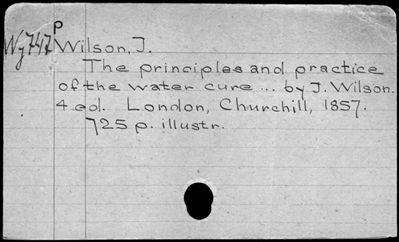 p
Wj747 Wilson, J.
The principles and practice
of the water cure ... by J. Wilson.
4 ed. London, Churchill, 1857.
725 p. illustr.